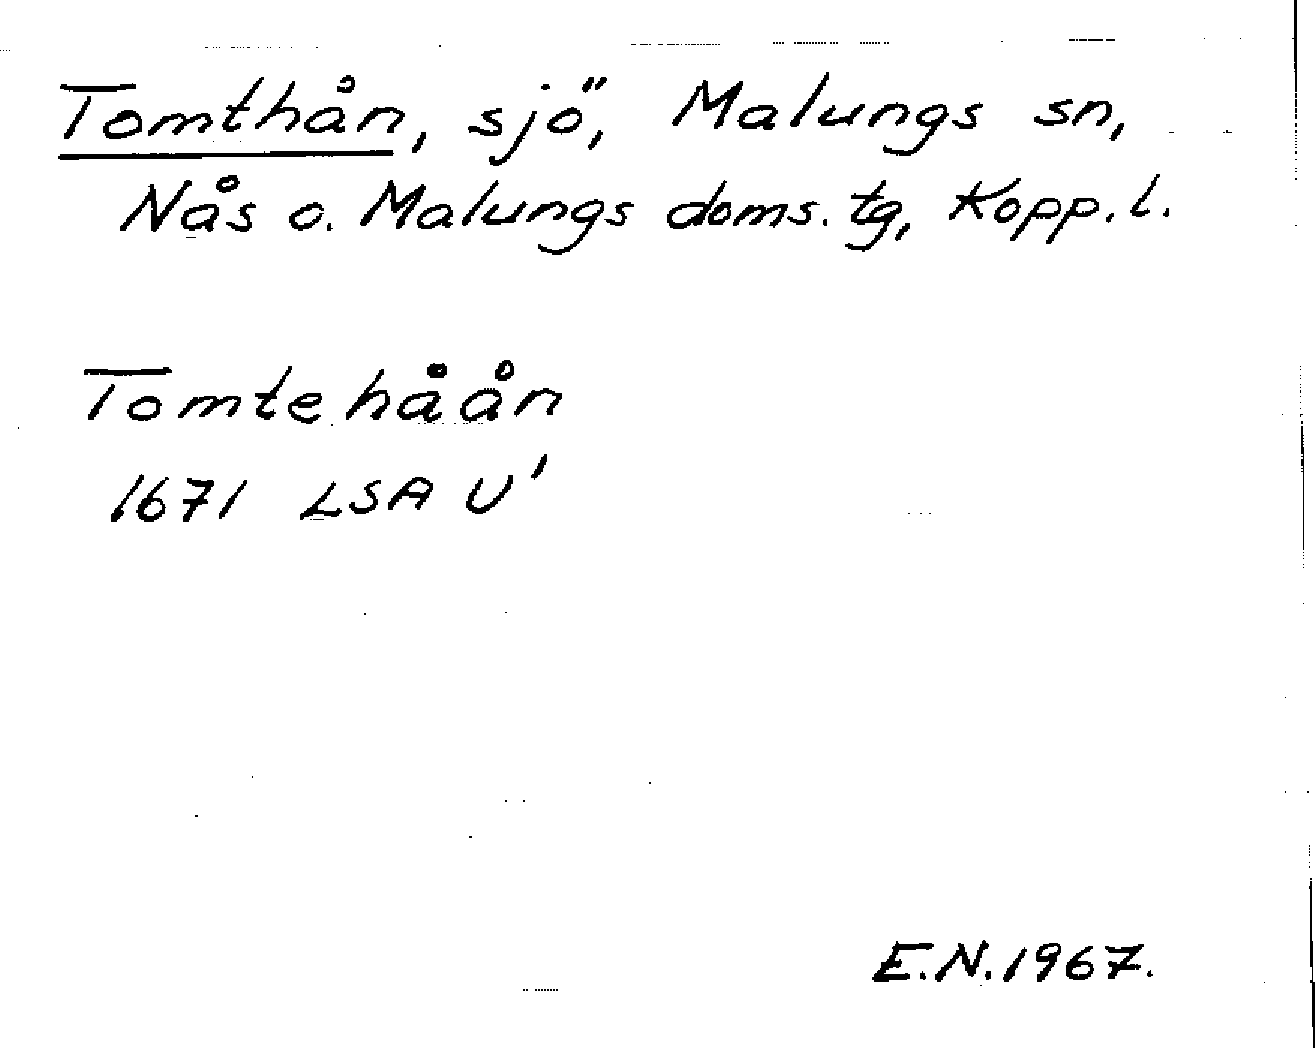 Tomthån, sjö, Malungs sn,
Nås o. Malungs doms. tg, Kopp. l.
Tomtehåån
1671 LSA U'
E.N. 1967.